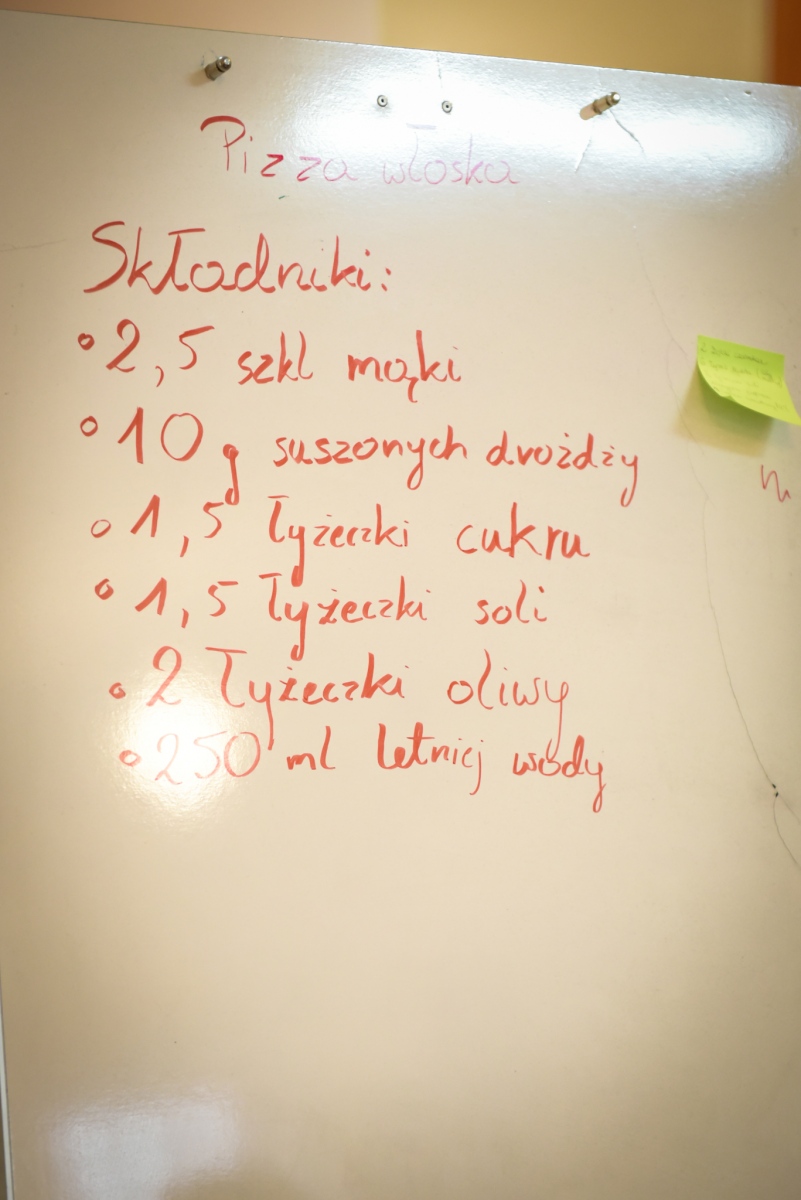 Pizza włoska
Składniki:
° 2,5 szkl mąki
° 10 g suszonych drożdży
° 1,5 łyżeczki cukru
° 1,5 łyżeczki soli
° 2 łyżeczki oliwy
° 250 ml letniej wody